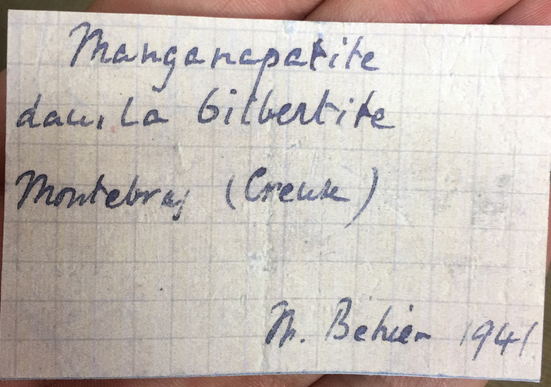 Manganapatite
dans La Gilbertite
Montebras (Creuse)
M. Béhier 1941